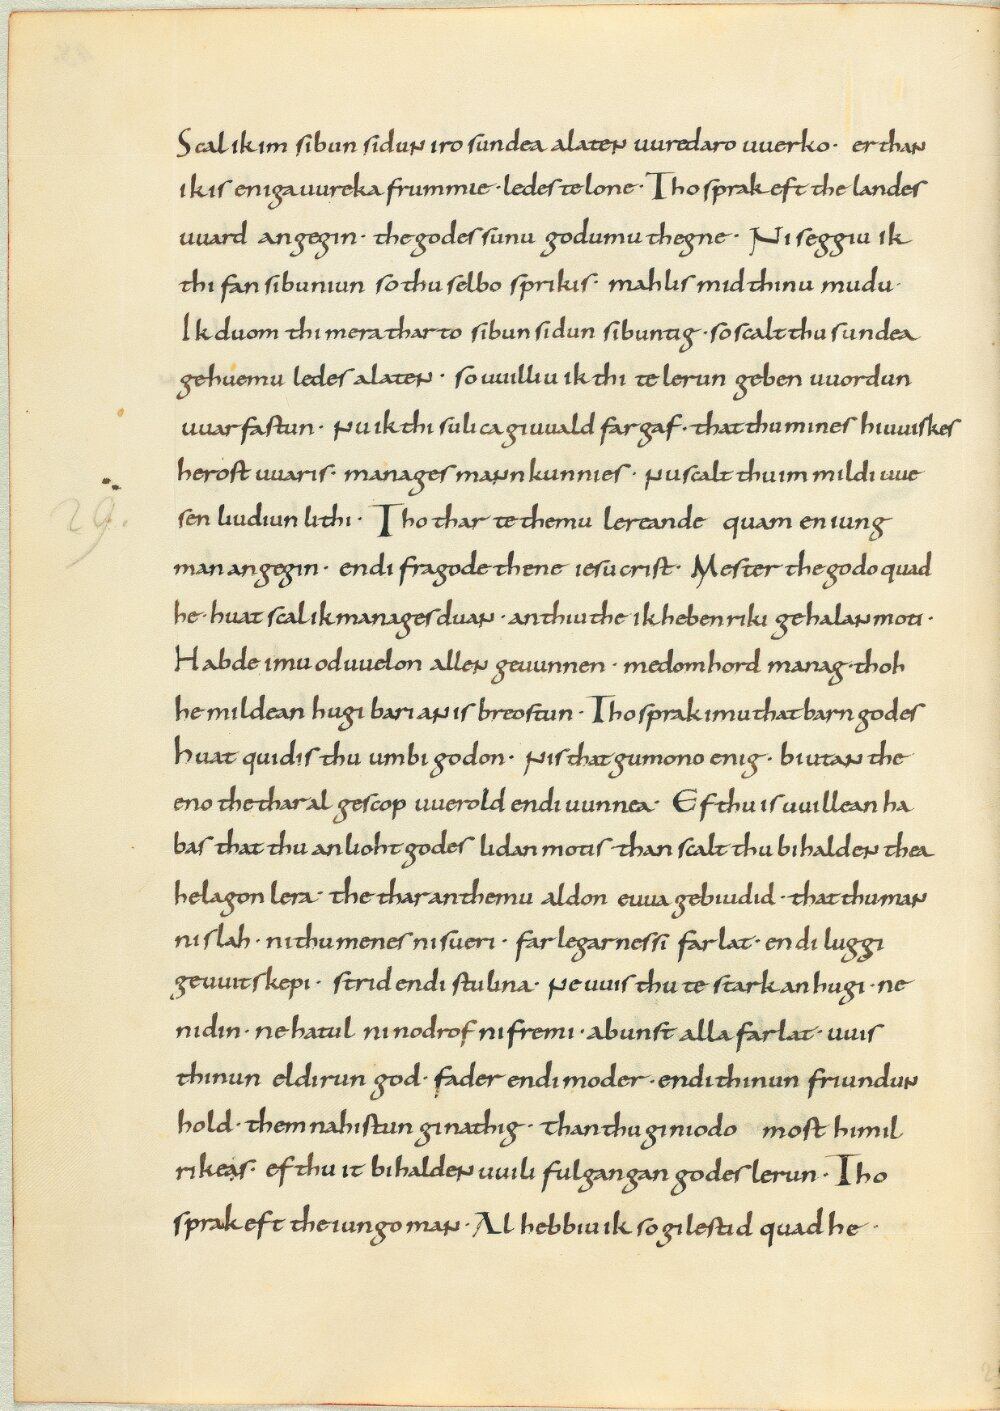 Scal ik im sibun sidun iro sundea alaten uuredaro uuerko · er than
ik is eniga uureka frummie · ledes te lone · Tho sprak eft the landes
uuard angegin · the godes sunu godumu thegne · Ni seggiu ik
thi fan sibuniun so thu selbo sprikis · mahlis mid thinu mudu ·
Ik duom thi mera thar to sibun sidun sibuntig · so scalt thu sundea
gehuemu ledes alaten · so uuilliu ik thi te lerun geben uuordun
uuar fastun · nu ik thi sulica giuuald fargaf · that thu mines hiuuiskes
herost uuaris · manages mannkunnies · nu scalt thu im mildi uue
sen liudiun lithi · Tho thar te themu lereande quam en iung
29.
man angegin · endi fragode thene iesu crist · Mester the godo quad
he · huat scal ik manages duan · an thiu the ik hebenriki gehalan moti ·
Habde imu oduuelon allen geuunnen · medomhord manag · thoh
he mildean hugi bari an is breostun · Tho sprak imu that barn godes
huat quidis thu umbi godon · nis that gumono enig · biutan the
eno the thar al gescop uuerold endi uunnea · Ef thu is uuillean ha
bas that thu an lioht godes lidan motis · than scalt thu bihalden thea
helagon lera · the thar an themu aldon euua gebiudid · that thu man
ni slah · ni thu menes ni sueri · farlegarnessi farlat · endi luggi
geuuitskepi · strid endi stulina · ne uuis thu te stark an hugi · ne
nidin · ne hatul ni nodrof ni fremi · abunst alla farlat · uuis
thinun eldirun god · fader endi moder · endi thinun friundun
hold · them nahistun ginathig · than thu giniodo most himil
rikeas · ef thu it bihalden uuili fulgangan godes lerun · Tho
sprak eft the iungo man · Al hebbiu ik so gilestid quad he ·